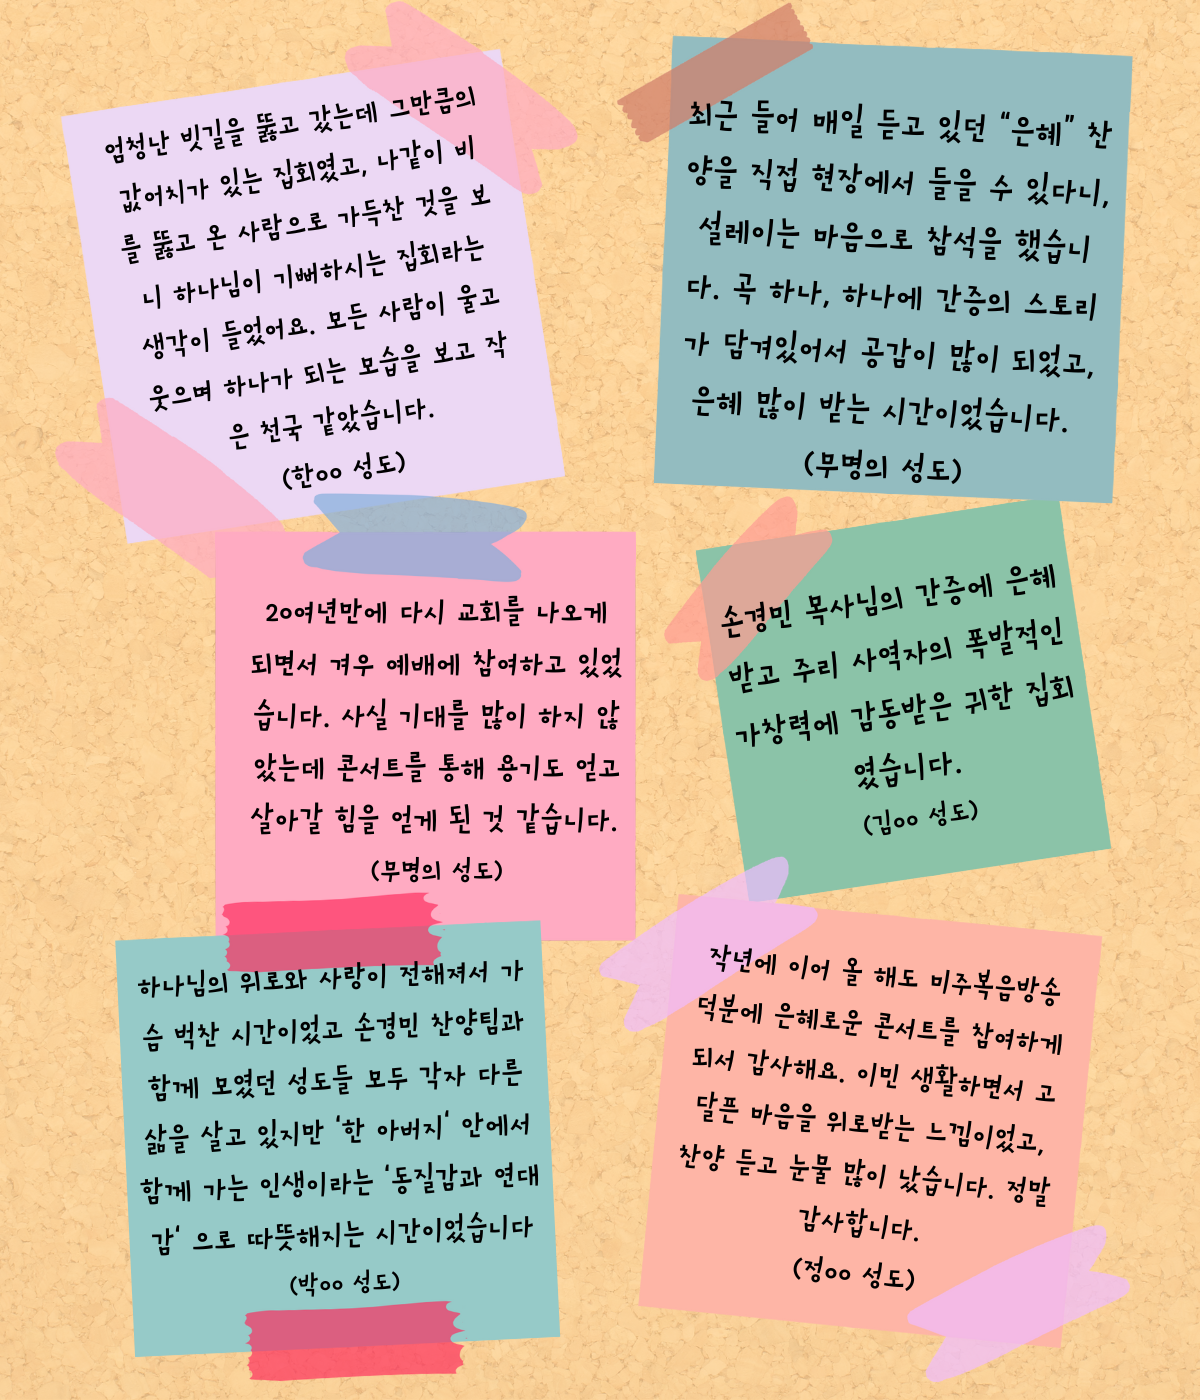 엄청난 빗길을 뚫고 갔는데 그만큼의
값어치가 있는 집회였고, 나같이 비
를 뚫고 온 사람으로 가득찬 것을 보
니 하나님이 기뻐하시는 집회라는
생각이 들었어요. 모든 사람이 울고
웃으며 하나가 되는 모습을 보고 작
은 천국 같았습니다.
(한oo 성도)
최근 들어 매일 듣고 있던 "은혜" 찬
양을 직접 현장에서 들을 수 있다니,
설레이는 마음으로 참석을 했습니
다. 곡 하나, 하나에 간증의 스토리
가 담겨있어서 공감이 많이 되었고,
은혜 많이 받는 시간이었습니다.
(무명의 성도)
20여년만에 다시 교회를 나오게
되면서 겨우 예배에 참여하고 있었
습니다. 사실 기대를 많이 하지 않
았는데 콘서트를 통해 용기도 얻고
살아갈 힘을 얻게 된 것 같습니다.
(무명의 성도)
손경민 목사님의 간증에 은혜
받고 주리 사역자의 폭발적인
가창력에 감동받은 귀한 집회
였습니다.
(김oo 성도)
하나님의 위로와 사랑이 전해져서 가
슴 벅찬 시간이었고 손경민 찬양팀과
함께 모였던 성도들 모두 각자 다른
삶을 살고 있지만 '한 아버지' 안에서
함께 가는 인생이라는 '동질감과 연대
감' 으로 따뜻해지는 시간이었습니다
(박oo 성도)
작년에 이어 올 해도 미주복음방송
덕분에 은혜로운 콘서트를 참여하게
되서 감사해요. 이민 생활하면서 고
달픈 마음을 위로받는 느낌이었고,
찬양 듣고 눈물 많이 났습니다. 정말
감사합니다.
(정oo 성도)